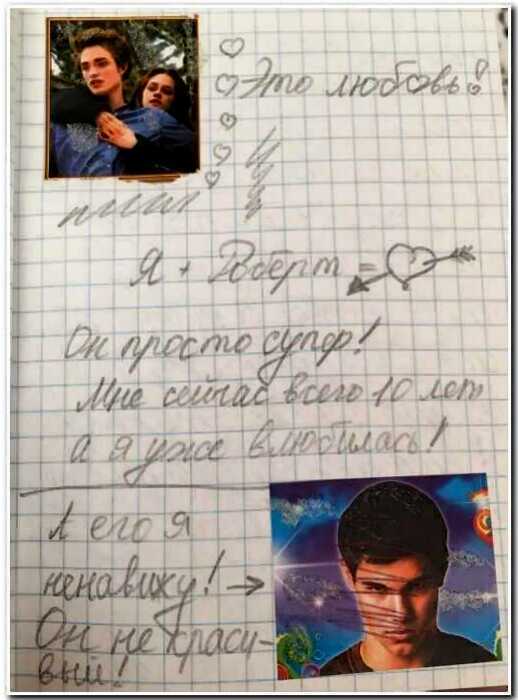 Это любовь!
Я + Роберт =
Он просто супер!
Мне сейчас всего 10 лет
а я уже влюбилась!
А его я
ненавижу! →
Он не краси-
вый!